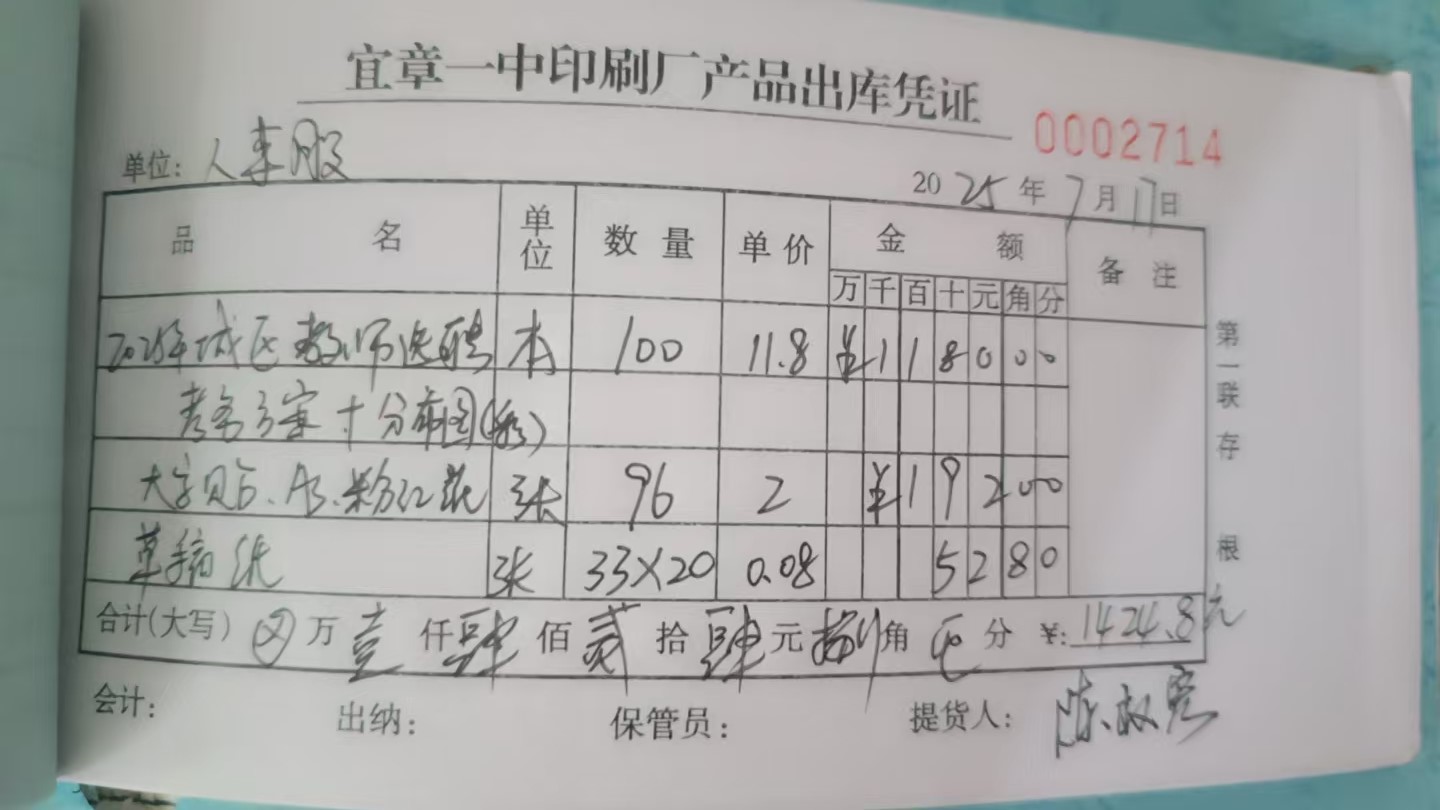 宜章一中印刷厂产品出库凭证
0002714
单位: 人事股
2025年7月17日
品名 单位 数量 单价 金额 备注
万 千 百 十 元 角 分
2025年城区教师选聘 本 100 11.8 ¥1 1 8 0 0 0
考务方案+分布图(彩)
大字贴与、A3、粉红花 张 96 2 ¥1 9 2 0 0
草稿纸 张 33×20 0.08 5 2 8 0
合计(大写) ⊗万壹仟肆佰贰拾肆元捌角 分 ¥:1424.8元
会计: 出纳: 保管员: 提货人: 陈
第一联存根